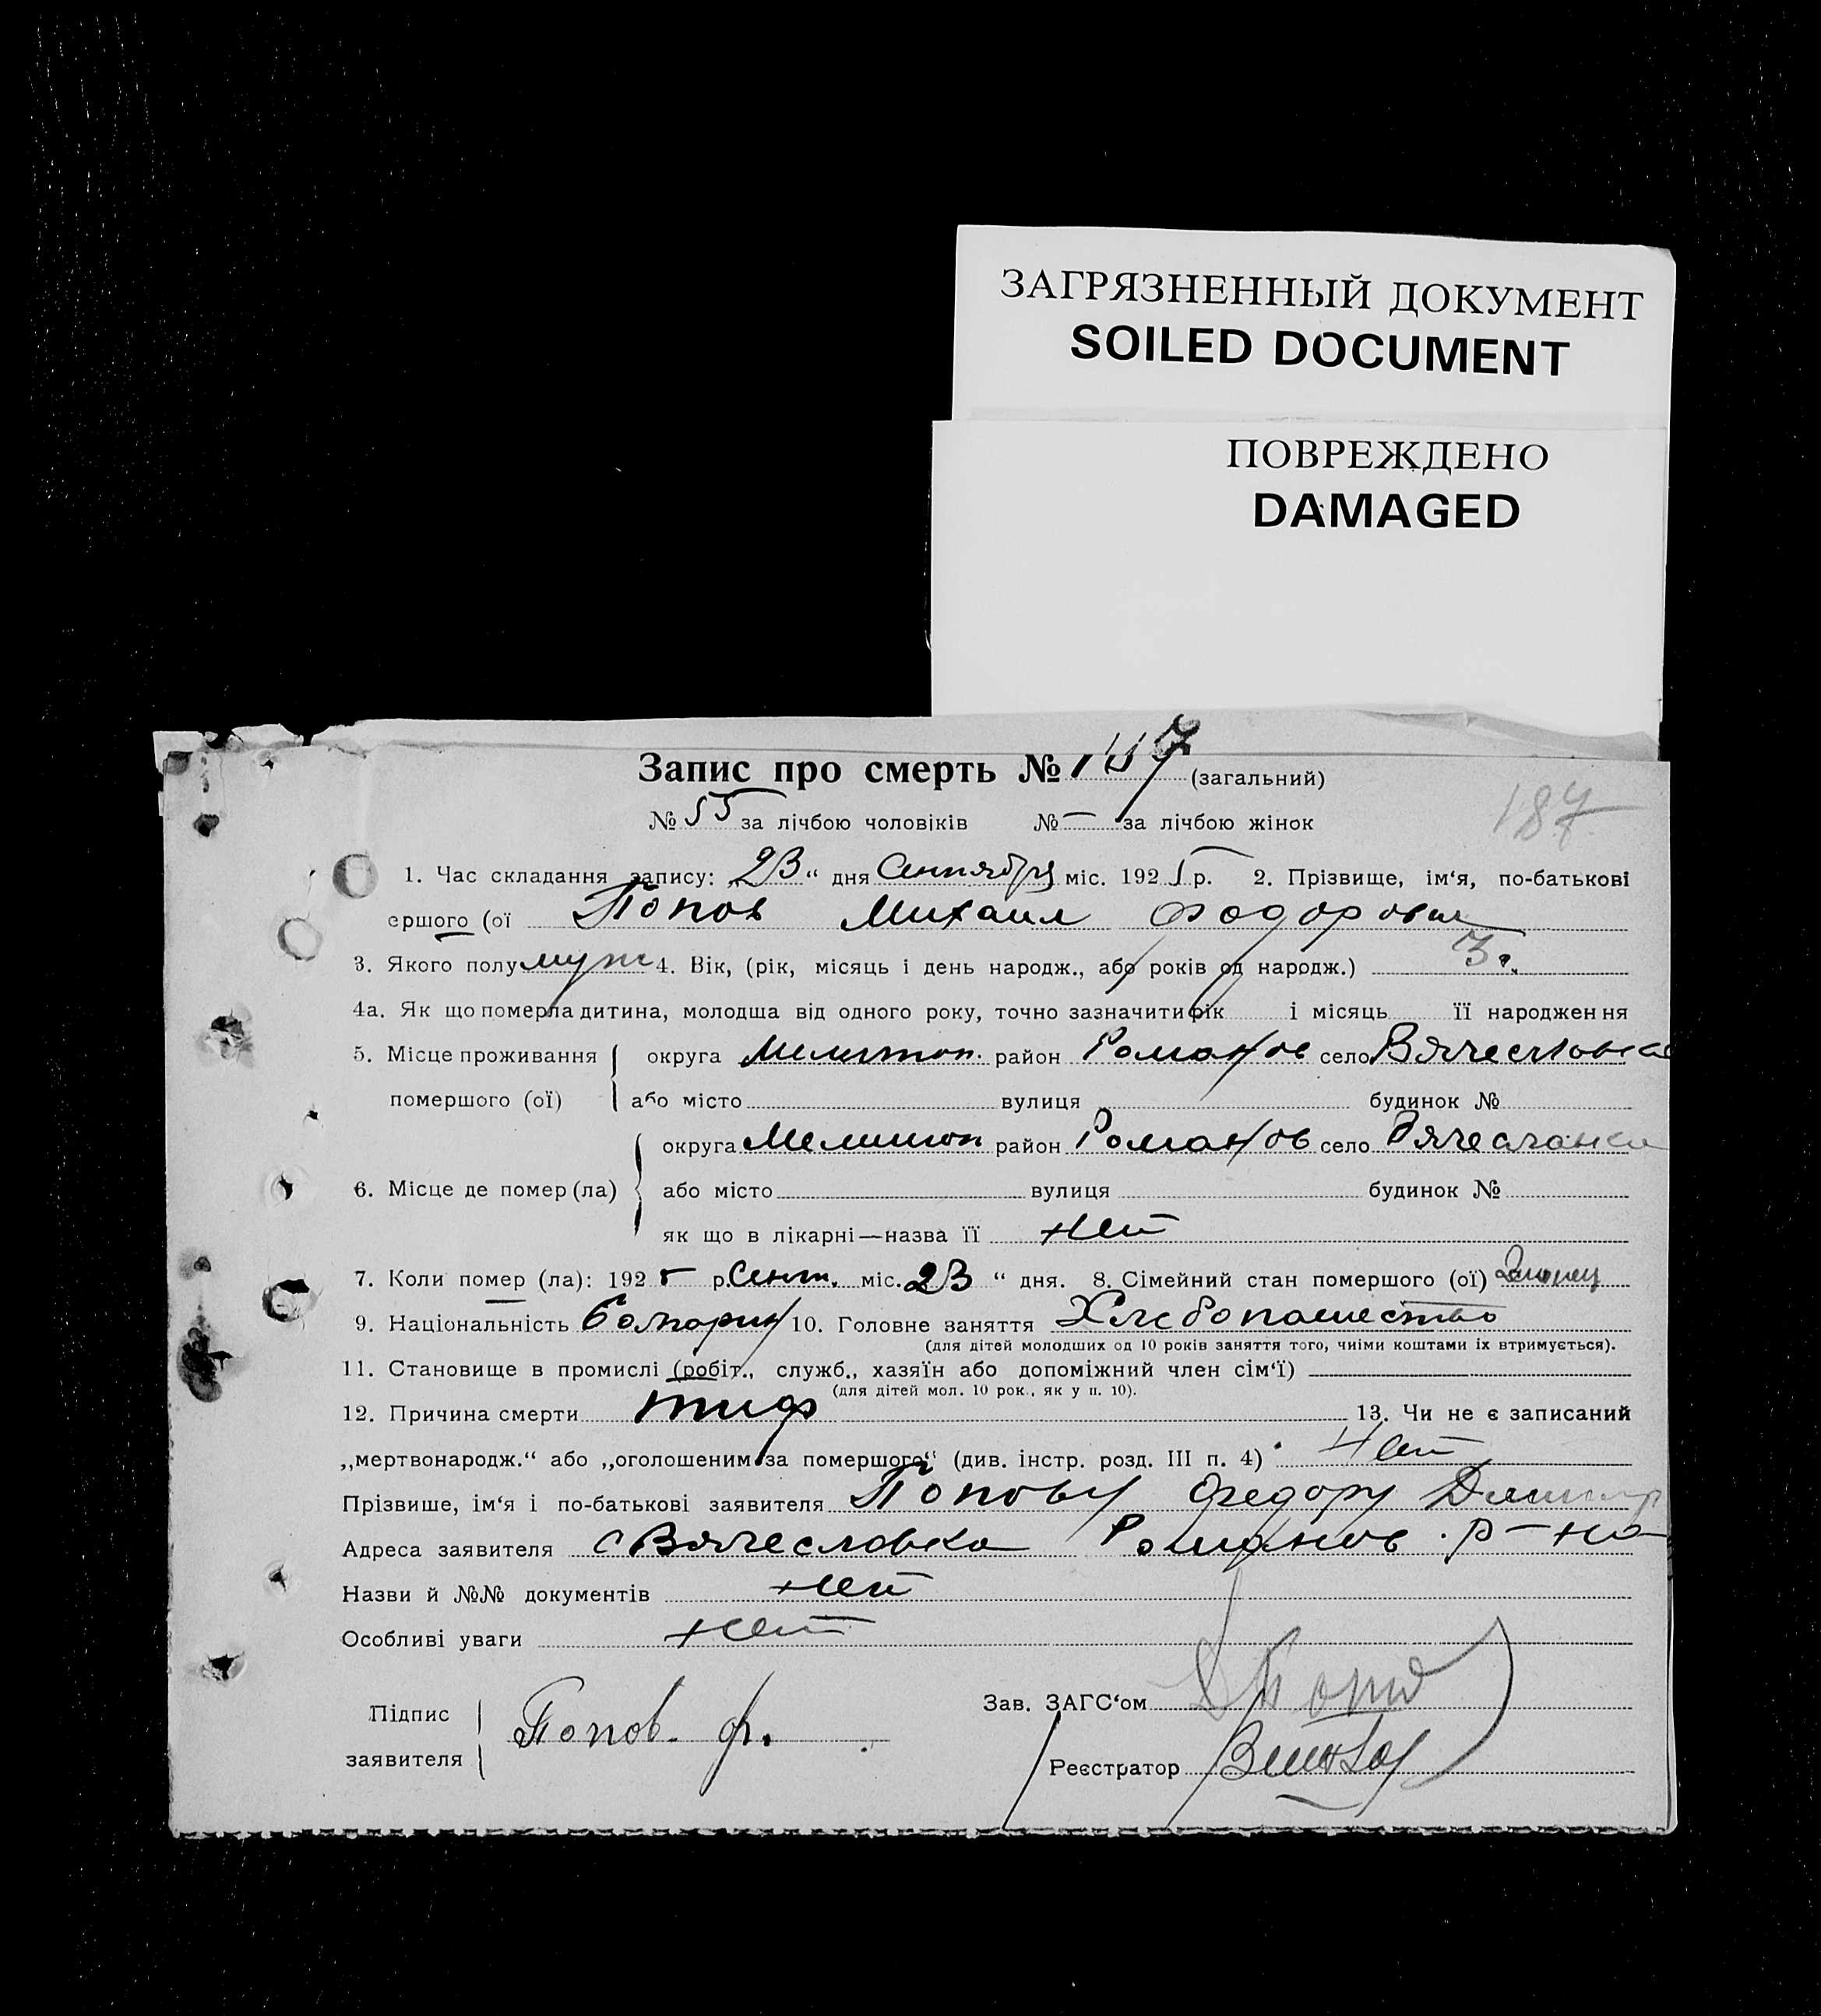 ЗАГРЯЗНЕННЫЙ ДОКУМЕНТ
SOILED DOCUMENT
ПОВРЕЖДЕНО
DAMAGED
Запис про смерть № (загальний)
187
№ 55 за лічбою чоловіків № — за лічбою жінок
1. Час складання запису: „23“ дня Сентября міс. 1925 р. 2. Прізвище, ім‘я, по-батькові
ершого (ої Попов Михаил Фодорович
3. Якого полу муж 4. Вік, (рік, місяць і день народж., або років од народж.) 3 г.
4а. Як що померла дитина, молодша від одного року, точно зазначити рік і місяць її народження
5. Місце проживання округа Мелитоп. район Романов село Вячеславка
помершого (ої) або місто вулиця будинок №
округа Мелитоп район Романов село Вячеславка
6. Місце де помер (ла) або місто вулиця будинок №
як що в лікарні—назва її нет
7. Коли помер (ла): 1925 р. Сент. міс. 23 “ дня. 8. Сімейний стан помершого (ої)
9. Національність Болгарин 10. Головне заняття Хлебопашество
(для дітей молодших од 10 років заняття того, чиїми коштами їх втримується).
11. Становище в промислі (робіт., служб., хазяїн або допоміжний член сім‘ї) —
(для дітей мол. 10 рок., як у п. 10).
12. Причина смерти тиф 13. Чи не є записаний
„мертвонародж.“ або „оголошеним за помершого“ (див. інстр. розд. III п. 4) Нет
Прізвише, ім‘я і по-батькові заявителя Попову Федору
Адреса заявителя с Вячеславка Романов. р-на
Назви й №№ документів нет
Особливі уваги нет
Підпис Попов. Ф. Зав. ЗАГС‘ом
заявителя Реєстратор